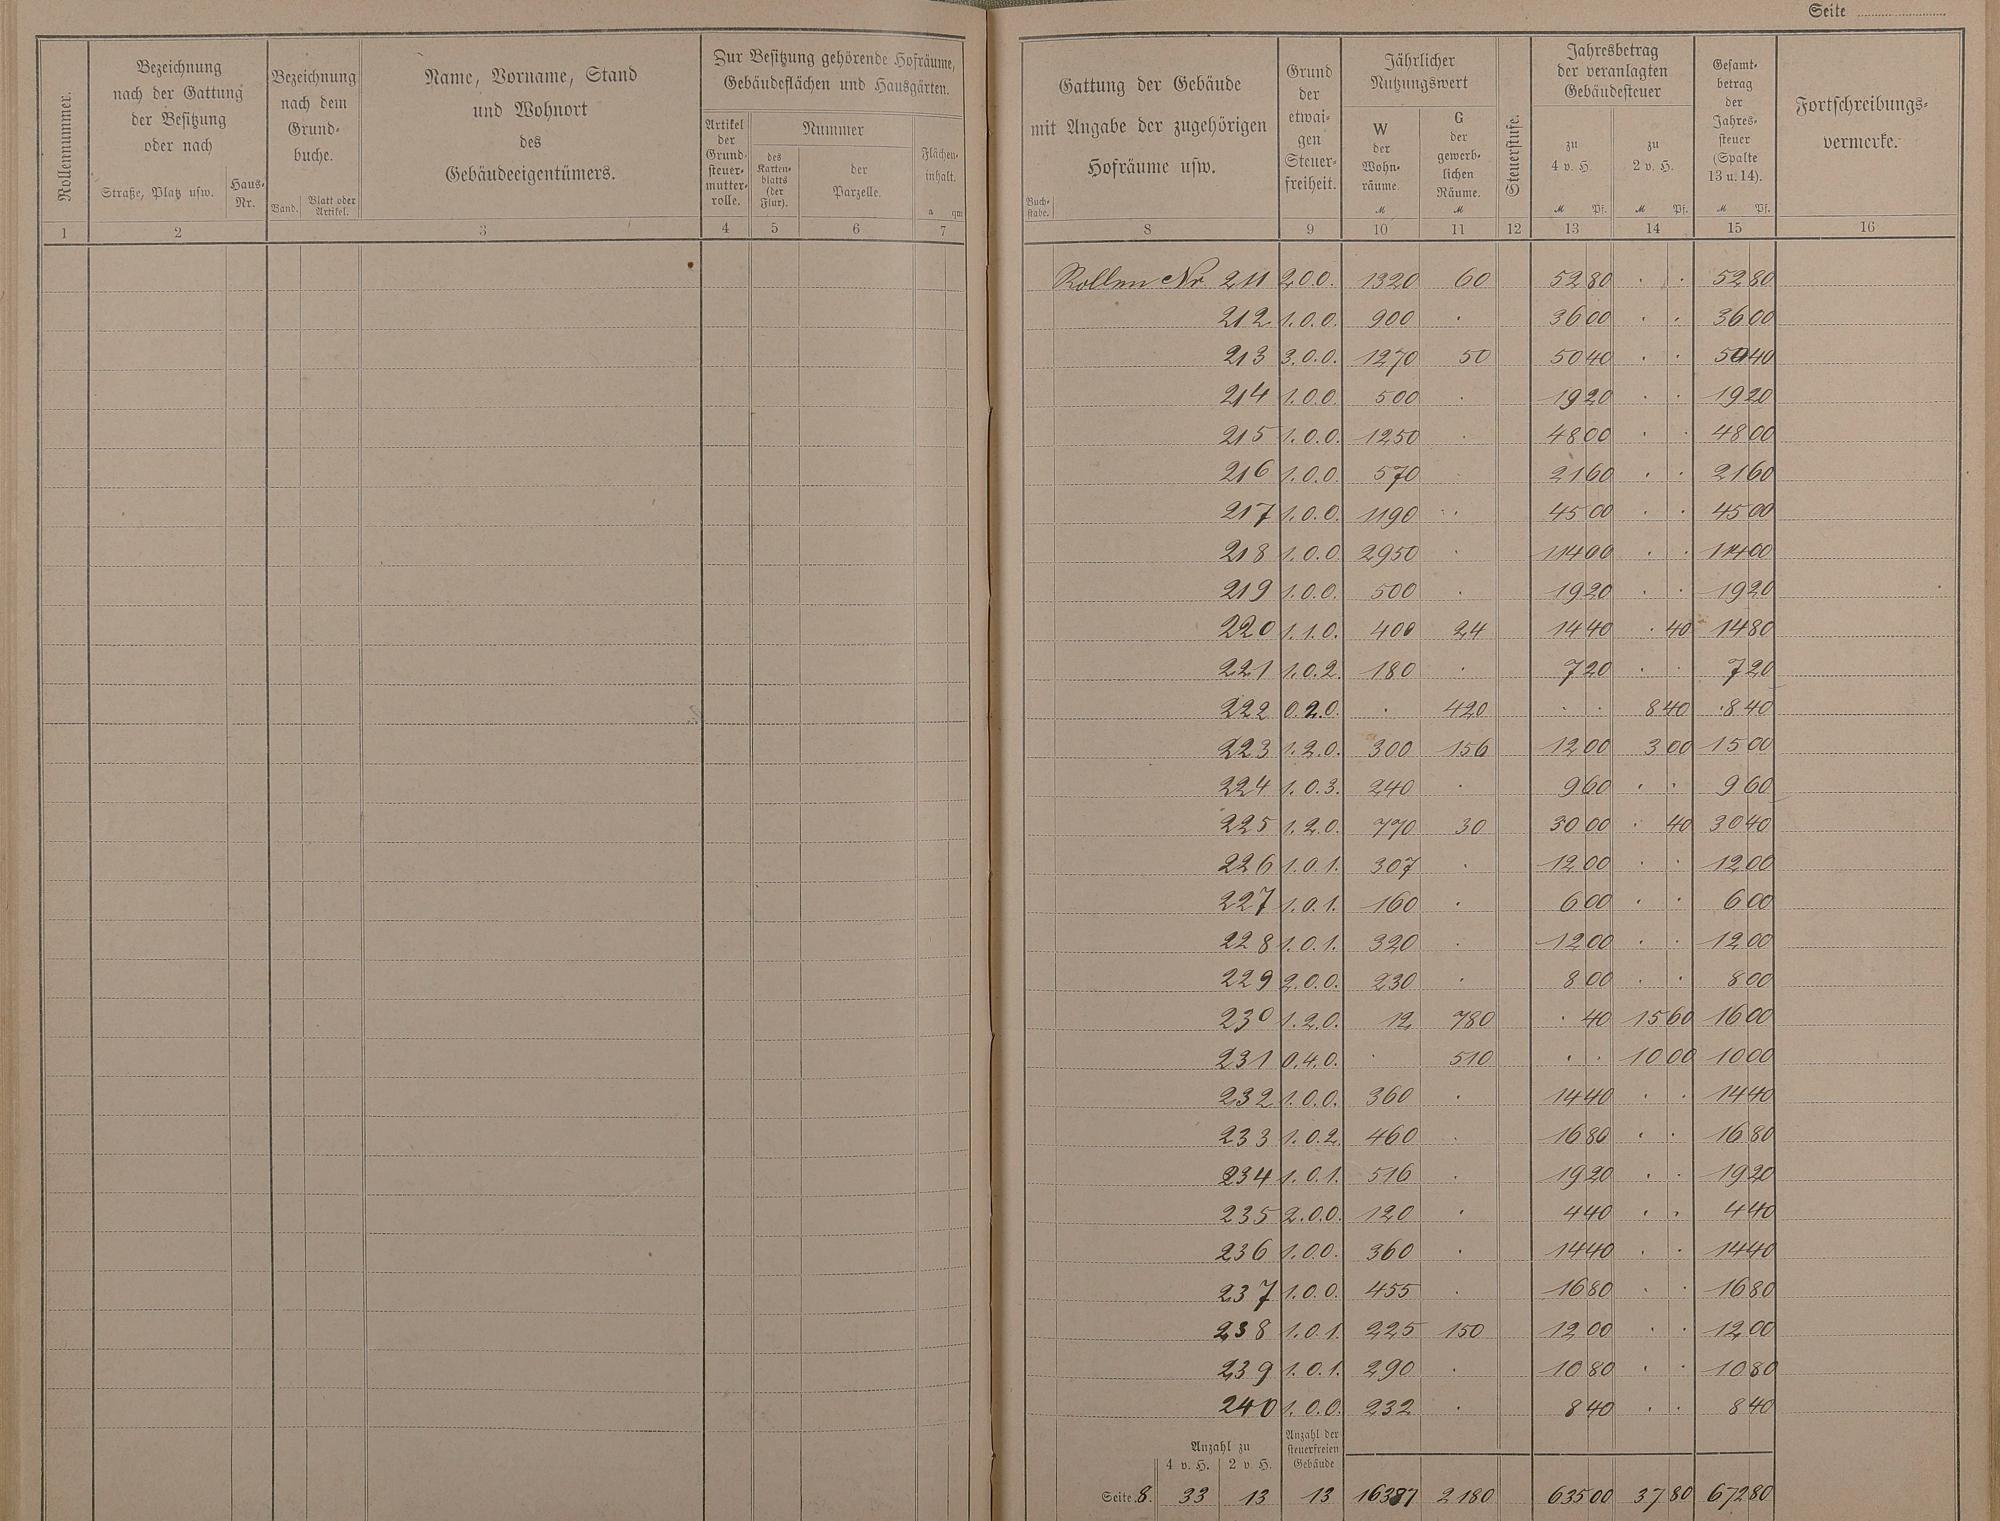 Seite
Rollennummer.
Bezeichnung
nach der Gattung
der Besitzung
oder nach
Straße, Platz usw.
Haus-
Nr.
Bezeichnung
nach dem
Grund-
buche.
Band.
Blatt oder
Artikel.
Name, Vorname, Stand
und Wohnort
des
Gebäudeeigentümers.
Zur Besitzung gehörende Hofräume,
Gebäudeflächen und Hausgärten.
Artikel
der
Grund-
steuer-
mutter-
rolle.
Nummer
des
Karten-
blatts
(der
Flur).
der
Parzelle.
Flächen-
inhalt.
a qm
1 2 3 4 5 6 7
Gattung der Gebäude
mit Angabe der zugehörigen
Hofräume usw.
Buch-
stabe.
Grund
der
etwai-
gen
Steuer-
freiheit.
Jährlicher
Nutzungswert
W
der
Wohn-
räume.
M
G
der
gewerb-
lichen
Räume.
M
Steuerstufe.
Jahresbetrag
der veranlagten
Gebäudesteuer
zu
4 v. H.
M Pf.
zu
2 v. H.
M Pf.
Gesamt-
betrag
der
Jahres-
steuer
(Spalte
13 u. 14).
M Pf.
Fortschreibungs-
vermerke.
8 9 10 11 12 13 14 15 16
Rollen Nr. 211 2.0.0. 1320 60 52 80 . . 52 80
212 1.0.0. 900 . 36 00 . . 36 00
213 3.0.0. 1270 50 50 40 . . 50 40
214 1.0.0. 500 . 19 20 . . 19 20
215 1.0.0. 1250 . 48 00 . . 48 00
216 1.0.0. 570 21 60 . . 21 60
217 1.0.0. 1190 . 45 00 . . 45 00
218 1.0.0. 2950 . 114 00 . . 114 00
219 1.0.0. 500 . 19 20 . . 19 20
220 1.1.0. 400 24 14 40 . 40 14 80
221 1.0.2. 180 . 7 20 . . 7 20
222 0.2.0. . 420 . . 8 40 8 40
223 1.2.0. 300 156 12 00 3 00 15 00
224 1.0.3. 240 . 9 60 . . 9 60
225 1.2.0. 770 30 30 00 . 40 30 40
226 1.0.1. 307 . 12 00 . . 12 00
227 1.0.1. 160 . 6 00 . . 6 00
228 1.0.1. 320 . 12 00 . . 12 00
229 2.0.0. 230 . 8 00 . . 8 00
230 1.2.0. 12 780 . 40 15 60 16 00
231 0.4.0. . 510 . . 10 00 10 00
232 1.0.0. 360 . 14 40 . . 14 40
233 1.0.2. 460 . 16 80 . . 16 80
234 1.0.1. 516 . 19 20 . . 19 20
235 2.0.0. 120 . 4 40 . . 4 40
236 1.0.0. 360 . 14 40 . . 14 40
237 1.0.0. 455 . 16 80 . . 16 80
238 1.0.1. 225 150 12 00 . . 12 00
239 1.0.1. 290 . 10 80 . . 10 80
240 1.0.0. 232 . 8 40 . . 8 40
Anzahl zu
4 v. H. 2 v. H.
Anzahl der
steuerfreien
Gebäude
Seite 8. 33 13 13 16387 2180 635 00 37 80 672 80